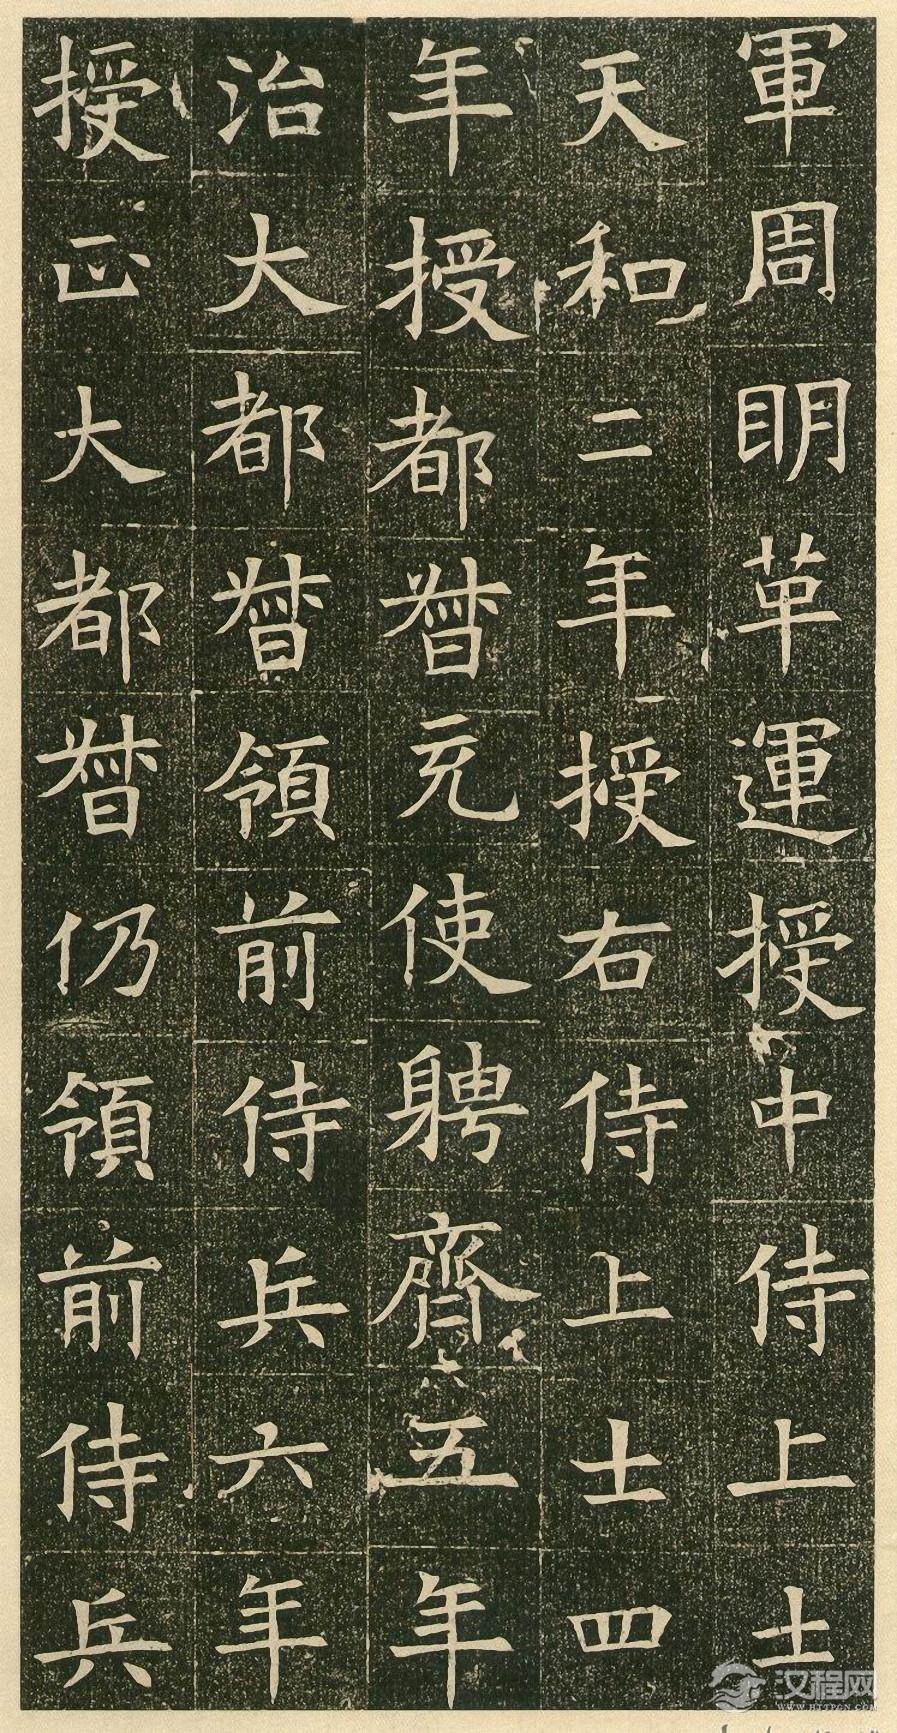 軍周明革運授中侍上士
天和二年授右侍上士四
年授都督充使聘齊五年
治大都督領前侍兵六年
授正大都督仍領前侍兵
汉程网
WWW.HTTPCN.COM